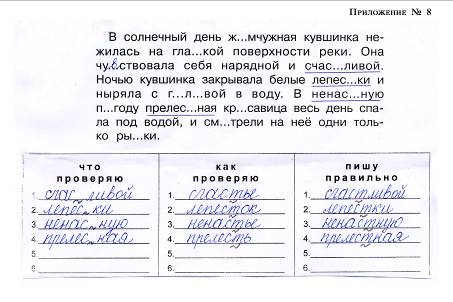 Приложение № 8
В солнечный день ж...мчужная кувшинка не-
жилась на гла...кой поверхности реки. Она
чу.в.ствовала себя нарядной и счас...ливой.
Ночью кувшинка закрывала белые лепес...ки и
ныряла с г...л...вой в воду. В ненас...ную
п...году прелес...ная кр...савица весь день спа-
ла под водой, и см...трели на неё одни толь-
ко ры...ки.
что проверяю как проверяю пишу правильно
1. счас...ливой 1. счастье 1. счастливой
2. лепес...ки 2. лепесток 2. лепестки
3. ненас...ную 3. ненастье 3. ненастную
4. прелес...ная 4. прелесть 4. прелестная
5. 5. 5.
6. 6. 6.